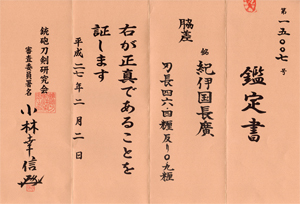 第一五〇〇七号
鑑定書
銘 紀伊国長廣
脇差
刃長四六四糎反一〇九糎
右が正真であることを
証します
平成二七年二月二日
銃砲刀剣研究会
審査委員署名
小林幸信